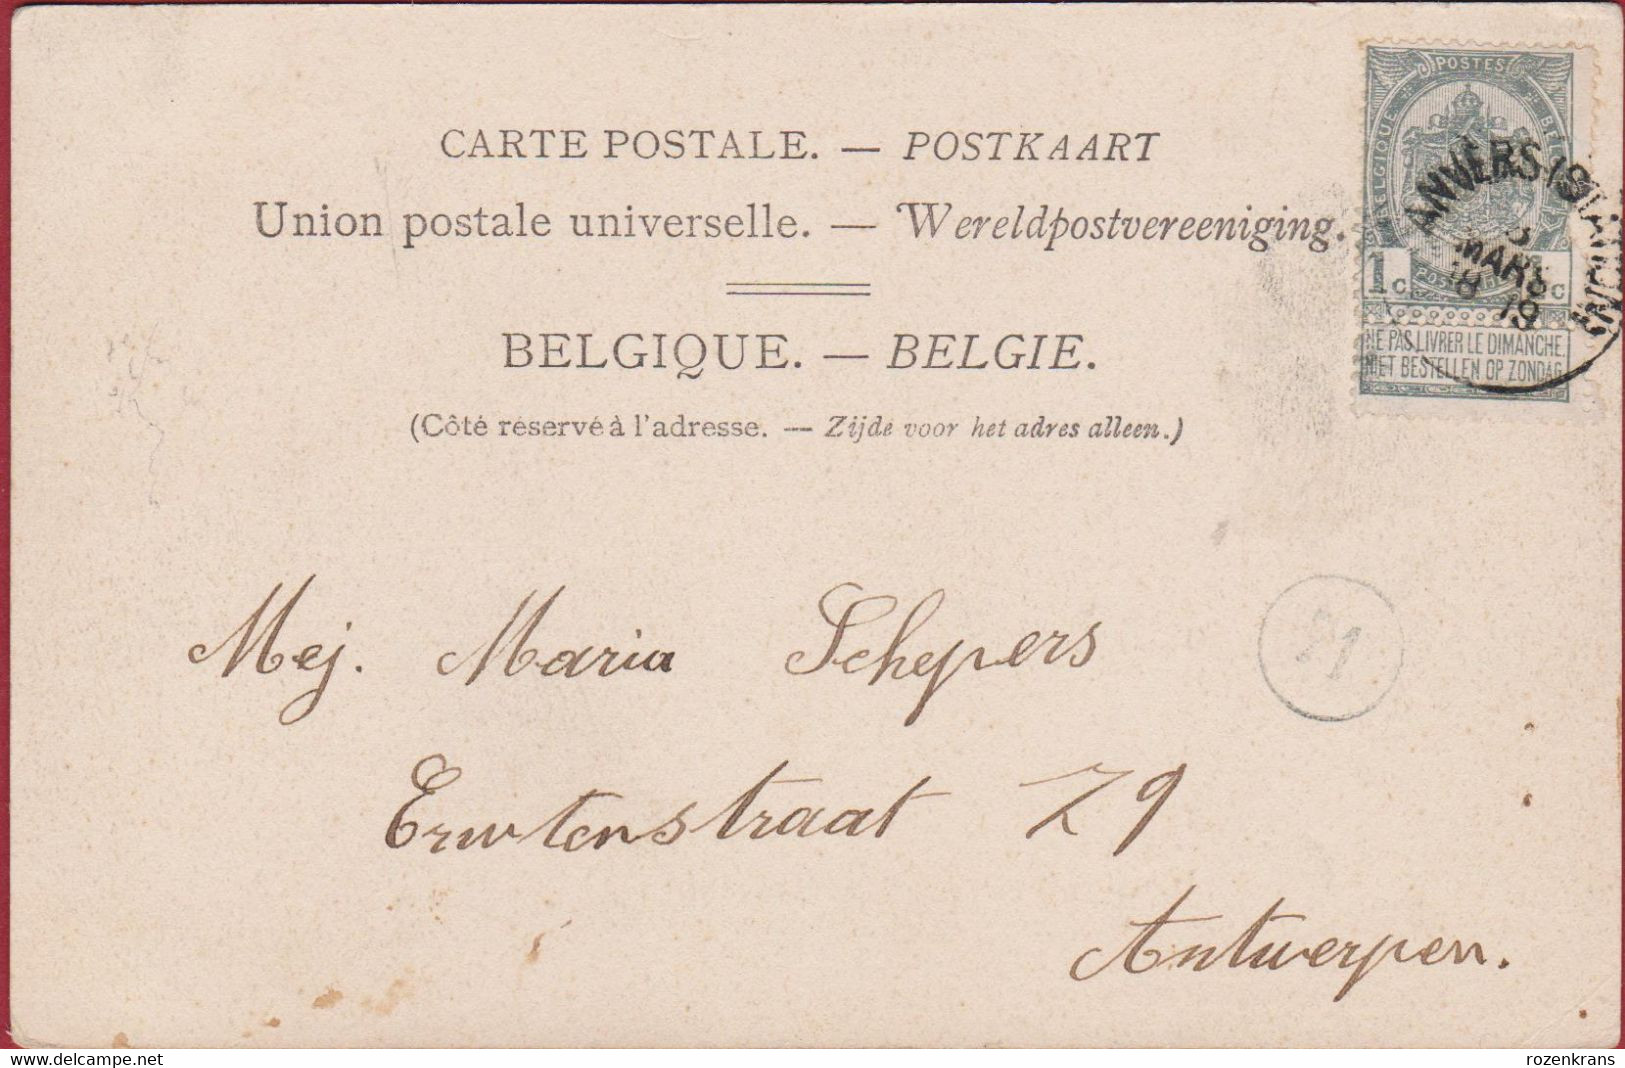 CARTE POSTALE. — POSTKAART
Union postale universelle. — Wereldpostvereeniging.
BELGIQUE. — BELGIE.
(Côté réservé à l'adresse. — Zijde voor het adres alleen.)
POSTES
BELGIQUE
1c
c
NE PAS LIVRER LE DIMANCHE.
NIET BESTELLEN OP ZONDAG
ANVERS (STATION)
MARS
18 19
Mej. Maria Schepers
Erwtenstraat 29
Antwerpen.
delcampe.net
rozenkrans